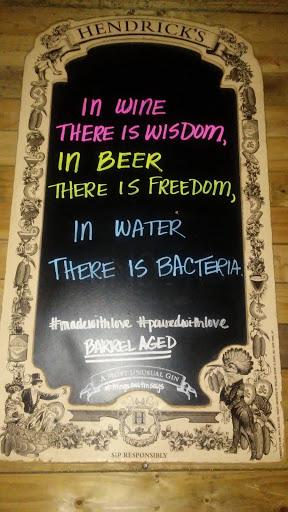 HENDRICK'S
In WINE
THERE IS WISDOM,
In BEER
THERE IS FREEDOM,
In WATER
THERE IS BACTERIA.
#madewithlove #pouredwithlove
BARREL AGED
A MOST UNUSUAL GIN
H
SIP RESPONSIBLY